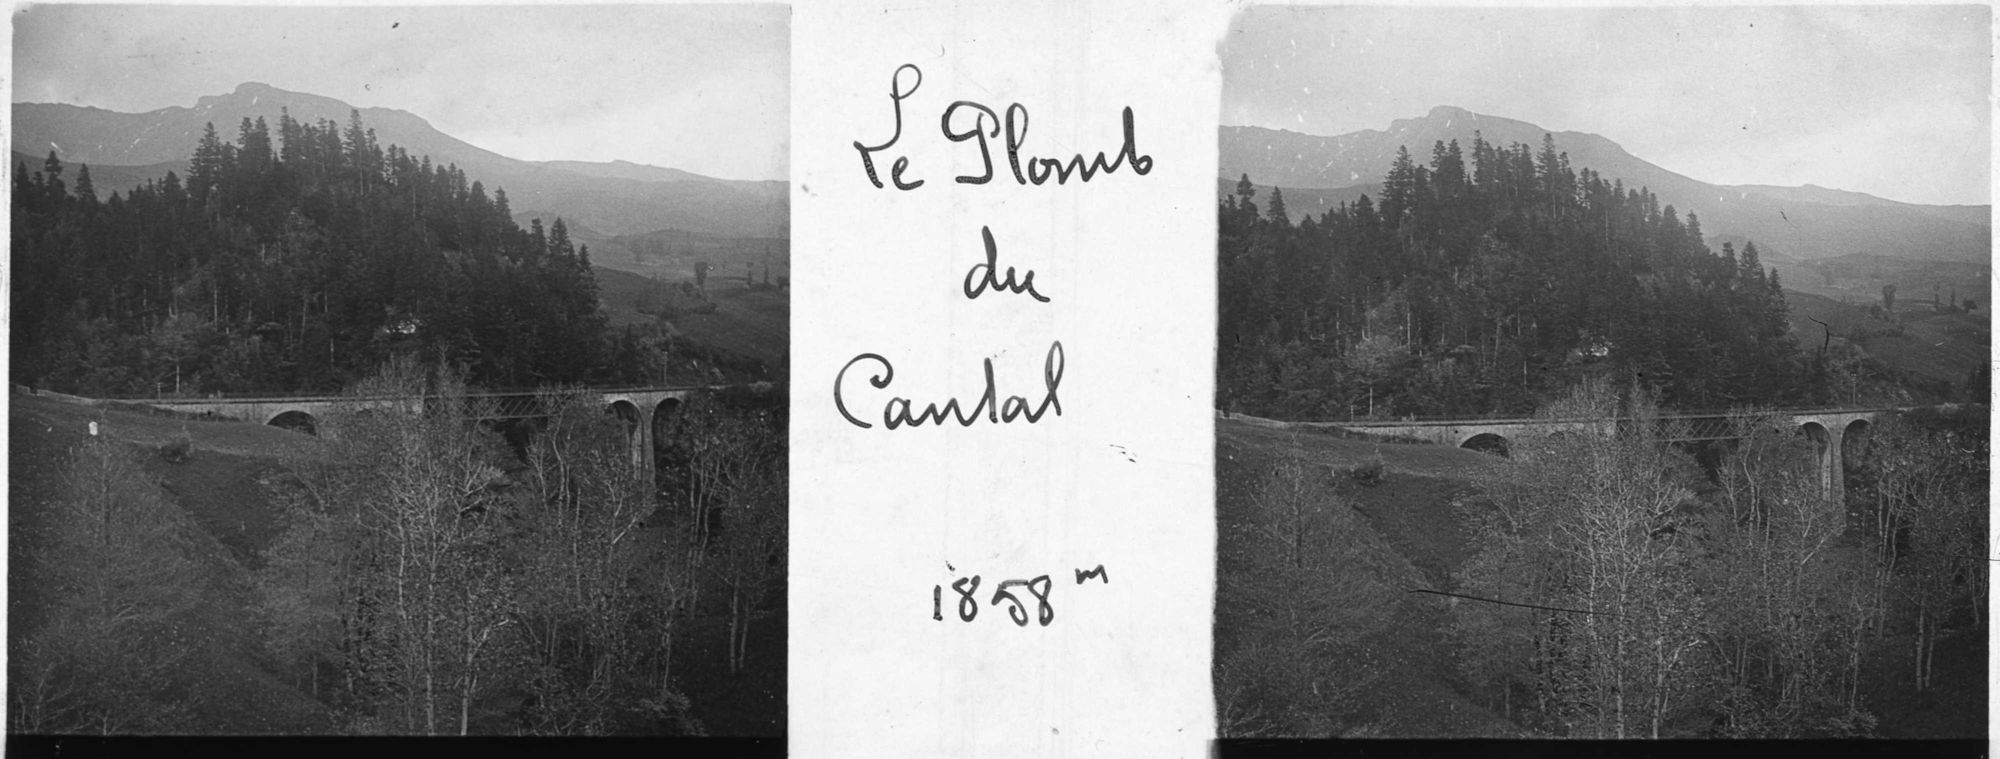 Le Plomb
du
Cantal
1858 m